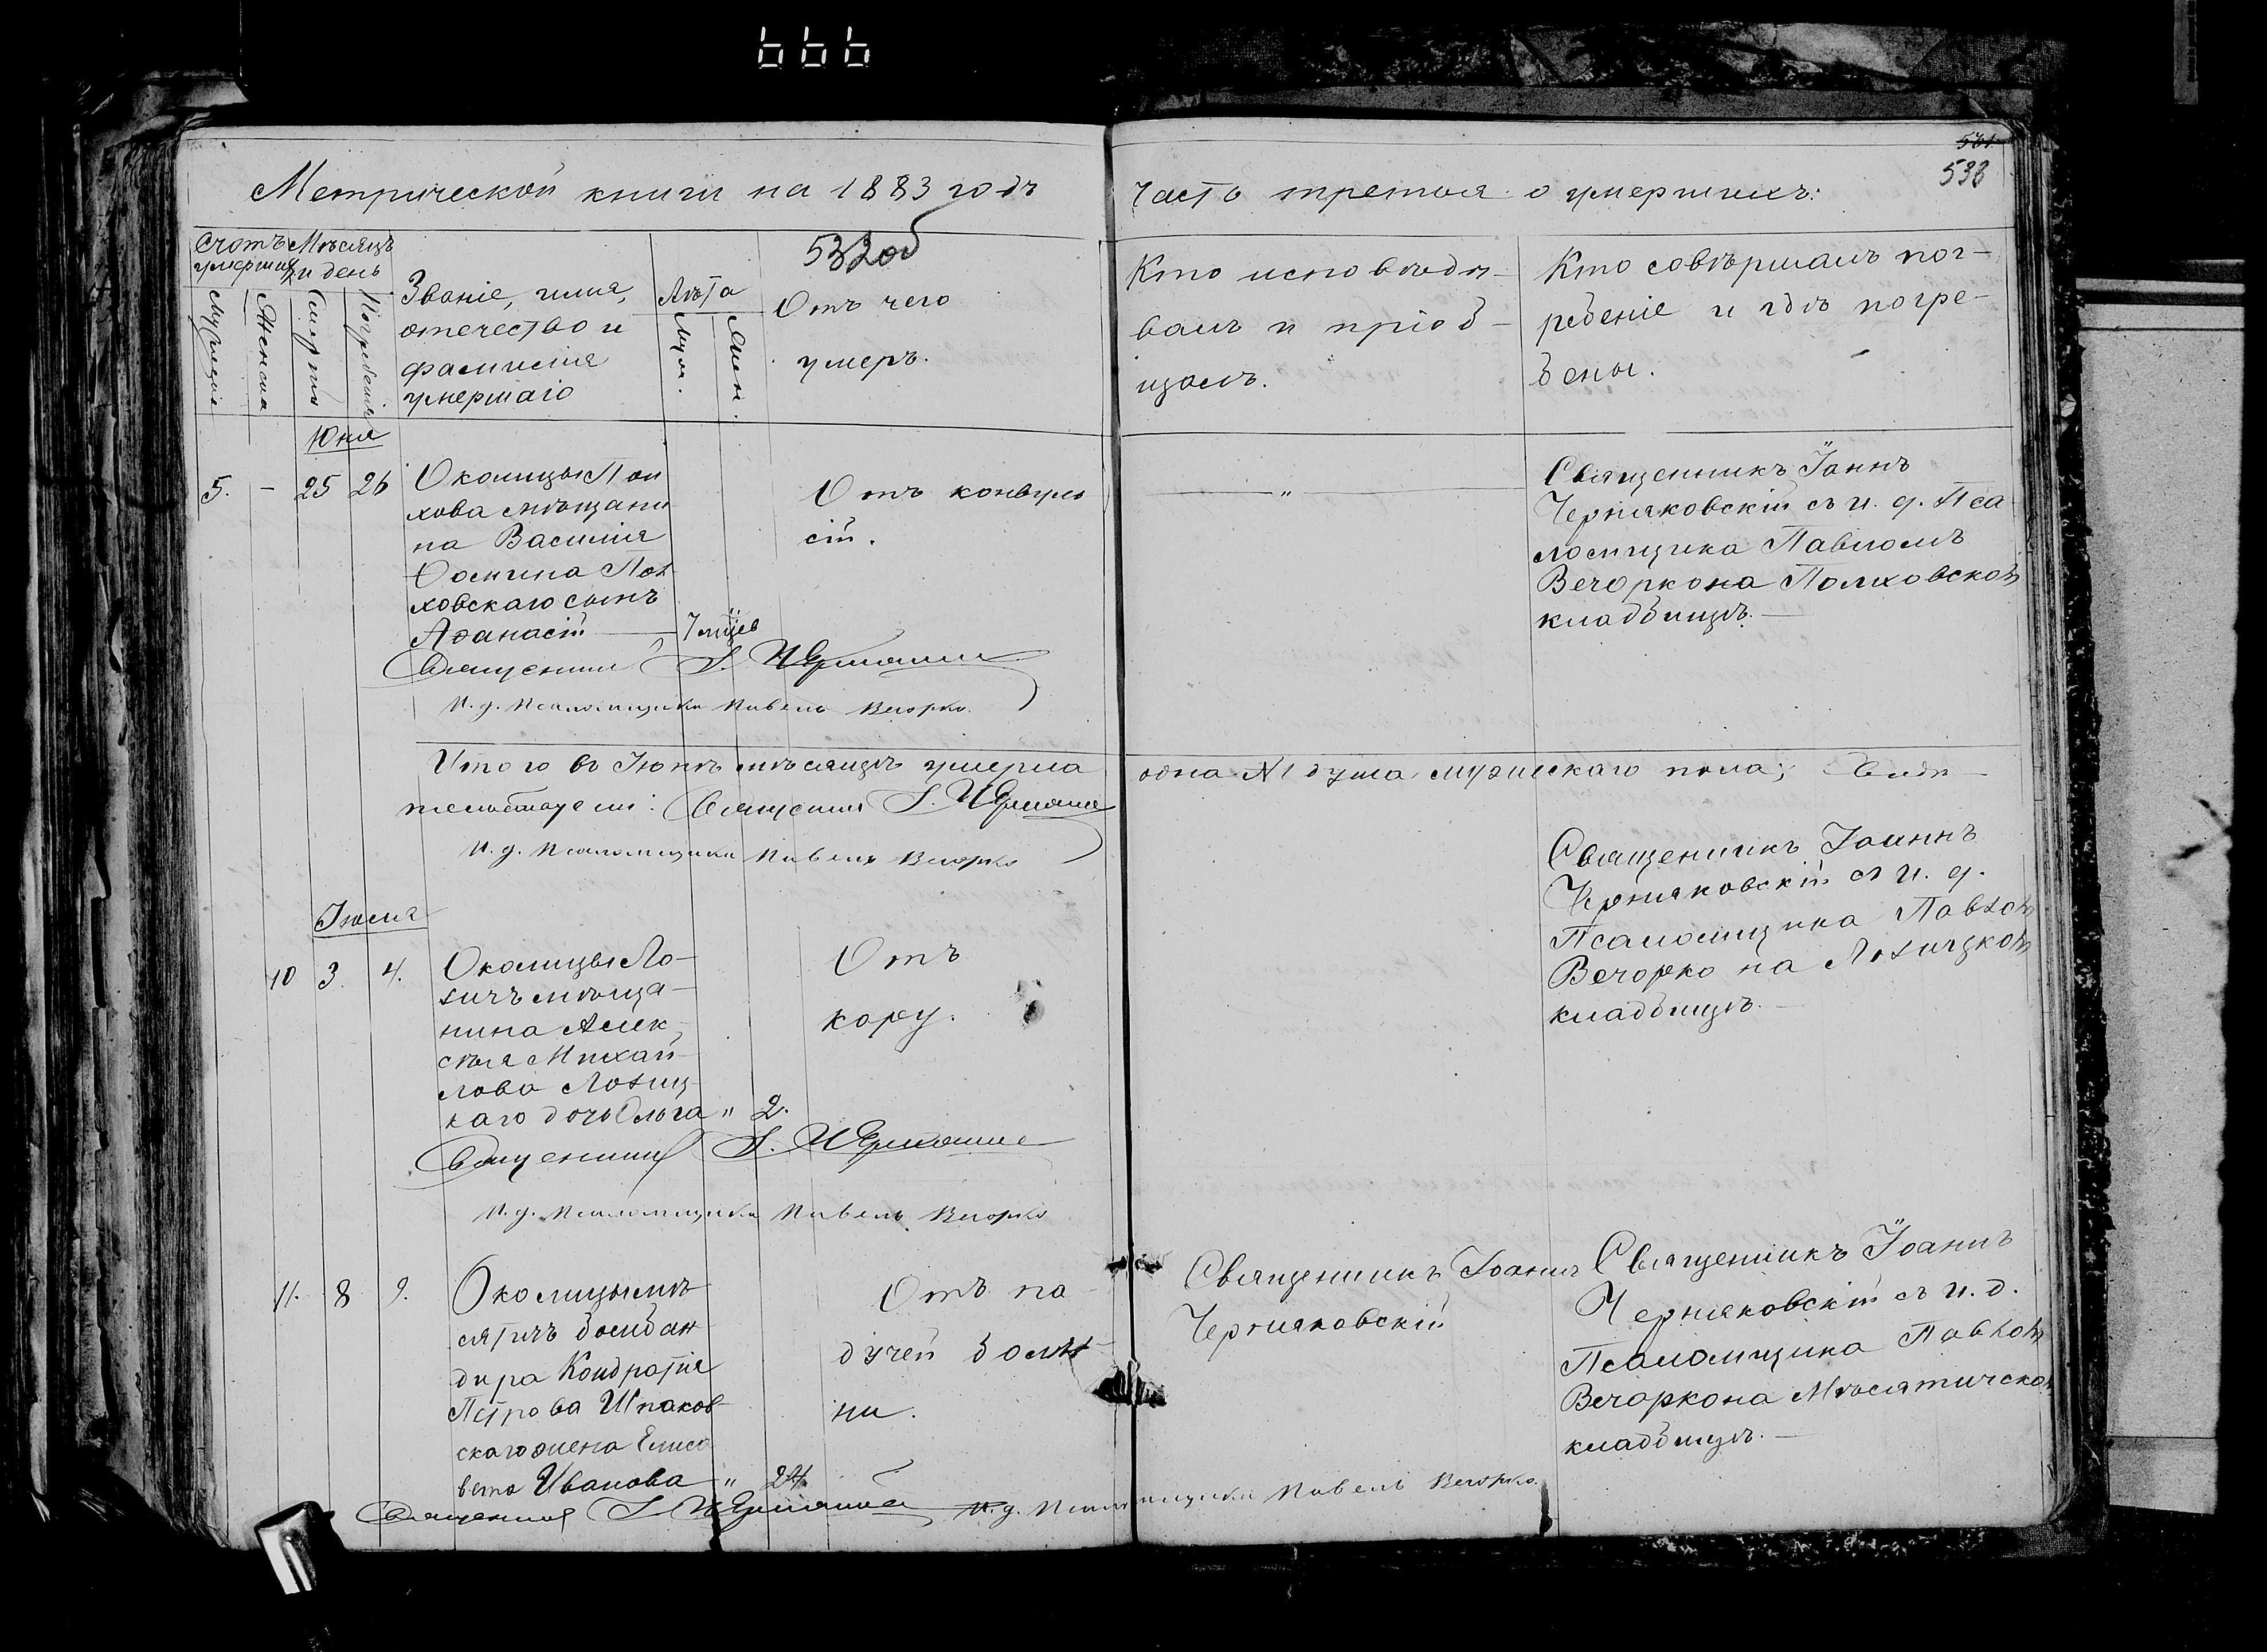 666
Метрической книги на 1883 годъ
Часть третья о умершихъ:
561
538
532об
Счотъ умершихъ
Мѣсяцъ и день
Мужеска
Женска
Смерти
Погребенія
Званіе, имя,
отечество и
фамилія
умершаго
Лѣта
Муж.
Жен.
Отъ чего
умеръ.
Кто исповѣды-
валъ и пріоб-
щалъ.
Кто совѣршалъ пог-
ребеніе и гдѣ погре-
бены.
Юня
5. - 25 26
Околицы Пол
хова мѣщани
на Василія
Фомина Пол
ховскаго сынъ
Афанасій
7 мѣсяцев
Отъ конвуль
сій.
"
Священникъ Іоаннъ
Черняковскій съ и. д. Пса
ломщика Павломъ
Вечорко на Полховскомъ
кладбищѣ.
Священникъ І. Черняковскій
И. д. Псаломщика Павелъ Вечорко.
Итого въ Іюнѣ мѣсяцѣ умерла
одна №1 душа мужескаго пола; Свидѣ-
тельствуемъ: Священникъ І. Черняковскій
И. д. Псаломщика Павелъ Вечорко
Іюля
10 3. 4.
Околицы Ло-
зичъ мѣща-
нина Алек-
сѣя Михай-
лова Лозиц-
каго дочь Ольга " 2.
Отъ
кору.
Священникъ Іоаннъ
Черняковскій съ и. д.
Псаломщика Павломъ
Вечорко на Лозицкомъ
кладбищѣ.
Священникъ І. Черняковскій
И. д. Псаломщика Павелъ Вечорко
11. 8 9.
Околицы Мѣ
сятичъ бомбан
дира Кондратія
Петрова Шпаков-
скаго жена Елиса
вета Иванова " 24
Отъ па-
дучей болѣз-
ни.
Священникъ Іоаннъ
Черняковскій
Священникъ Іоаннъ
Черняковскій съ и. д.
Псаломщика Павломъ
Вечорко на Мѣсятичскомъ
кладбищѣ.
Священникъ І. Черняковскій И. д. Псаломщика Павелъ Вечорко.